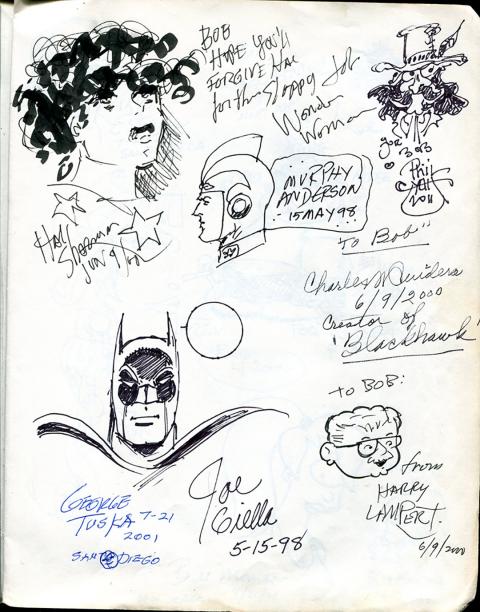 BOB
HOPE YOU'LL
FORGIVE HAL
for this Sloppy Job
Wonder
Woman
Hal
Sherman
JUN 9/00
MURPHY
ANDERSON
15 MAY 98
for
BOB
Phil
2011
"To Bob"
Charles
6/9/2000
Creator of
"Blackhawk"
TO BOB:
from
HARRY
LAMPERT.
6/9/2000
Joe
Giella
5-15-98
GEORGE
TUSKA 7-21
2001
SAN DIEGO